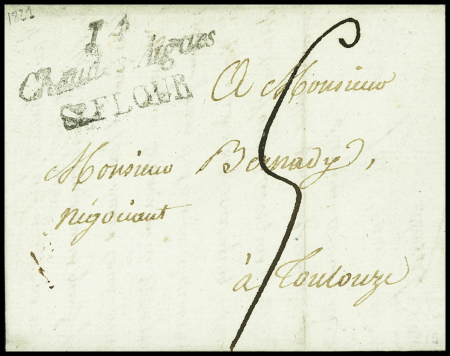 1821
14
Chaudes-Aigues
St FLOUR
A Monsieur
Monsieur Bernady,
négociant
à Toulouze
5